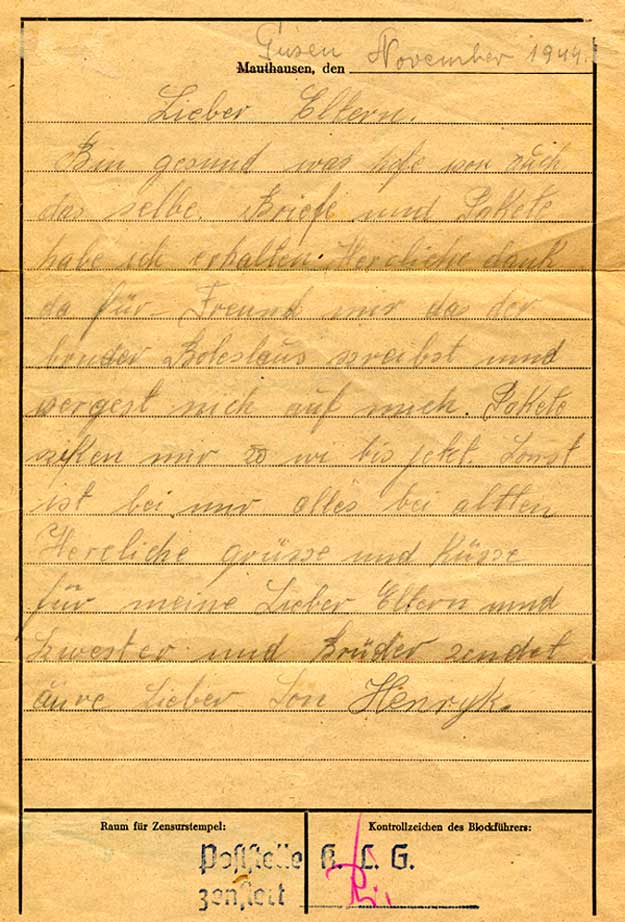 Gusen November 1944.
Mauthausen, den
Lieber Eltern.
Bin gesund was hofe von äuch
das selbe. Briefe und Pakete
habe ich erhalten. Hercliche dank
da für- Freund mir das der
bruder Boleslaus szreibst und
vergest nich auf mich. Pakete
mir so wi bis jetzt. Sonst
ist bei mir alles bei altten
Hercliche grüsse und Küsse
für meine Lieber Eltern und
szwester und Brüder sendet
äure Lieber Son Henryk.
Raum für Zensurstempel:
Kontrollzeichen des Blockführers:
Poststelle K. L. G.
zensiert